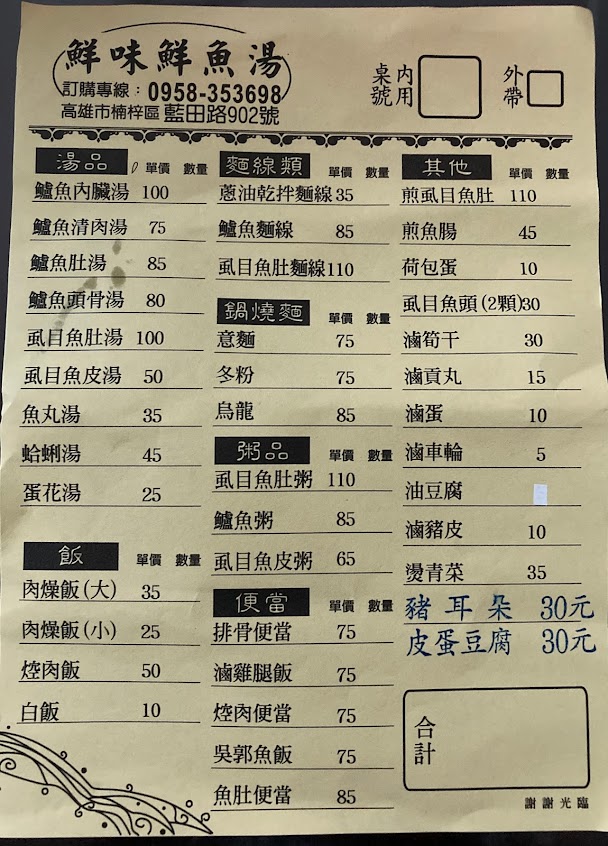 鮮味鮮魚湯
訂購專線：0958-353698
高雄市楠梓區 藍田路902號
桌號 內用
外帶
湯品 單價 數量
鱸魚內臟湯 100
鱸魚清肉湯 75
鱸魚肚湯 85
鱸魚頭骨湯 80
虱目魚肚湯 100
虱目魚皮湯 50
魚丸湯 35
蛤蜊湯 45
蛋花湯 25
飯 單價 數量
肉燥飯(大) 35
肉燥飯(小) 25
焢肉飯 50
白飯 10
麵線類 單價 數量
蔥油乾拌麵線 35
鱸魚麵線 85
虱目魚肚麵線 110
鍋燒麵 單價 數量
意麵 75
冬粉 75
烏龍 85
粥品 單價 數量
虱目魚肚粥 110
鱸魚粥 85
虱目魚皮粥 65
便當 單價 數量
排骨便當 75
滷雞腿飯 75
焢肉便當 75
吳郭魚飯 75
魚肚便當 85
其他 單價 數量
煎虱目魚肚 110
煎魚腸 45
荷包蛋 10
虱目魚頭(2顆) 30
滷筍干 30
滷貢丸 15
滷蛋 10
滷車輪 5
油豆腐
滷豬皮 10
燙青菜 35
豬耳朵 30元
皮蛋豆腐 30元
合計
謝謝光臨